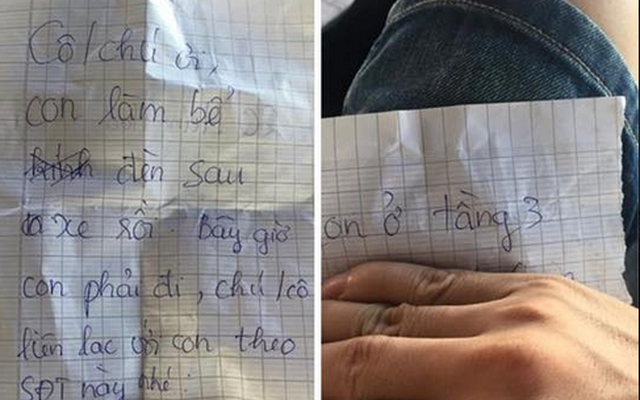 Cô/chú ơi,
con làm bể
đèn sau
xe rồi. Bây giờ
con phải đi, chú/cô
liên lạc với con theo
SĐT này nhé:
on ở tầng 3